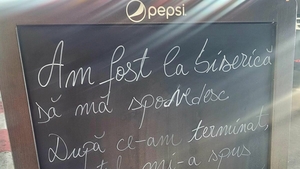 pepsi
Am fost la biserică
să mă spovedesc
După ce-am terminat,
mi-a spus